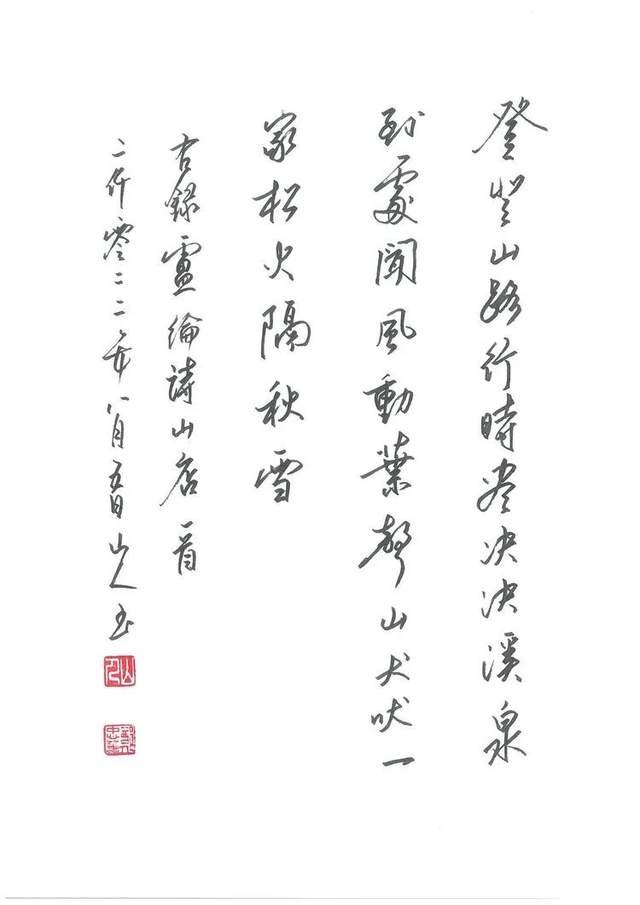 登登山路行時尽决决溪泉
到處聞風動葉聲山犬吠一
家松火隔秋雪
右錄盧綸詩山店一首
二仟零二二年八月五日山人书
山人